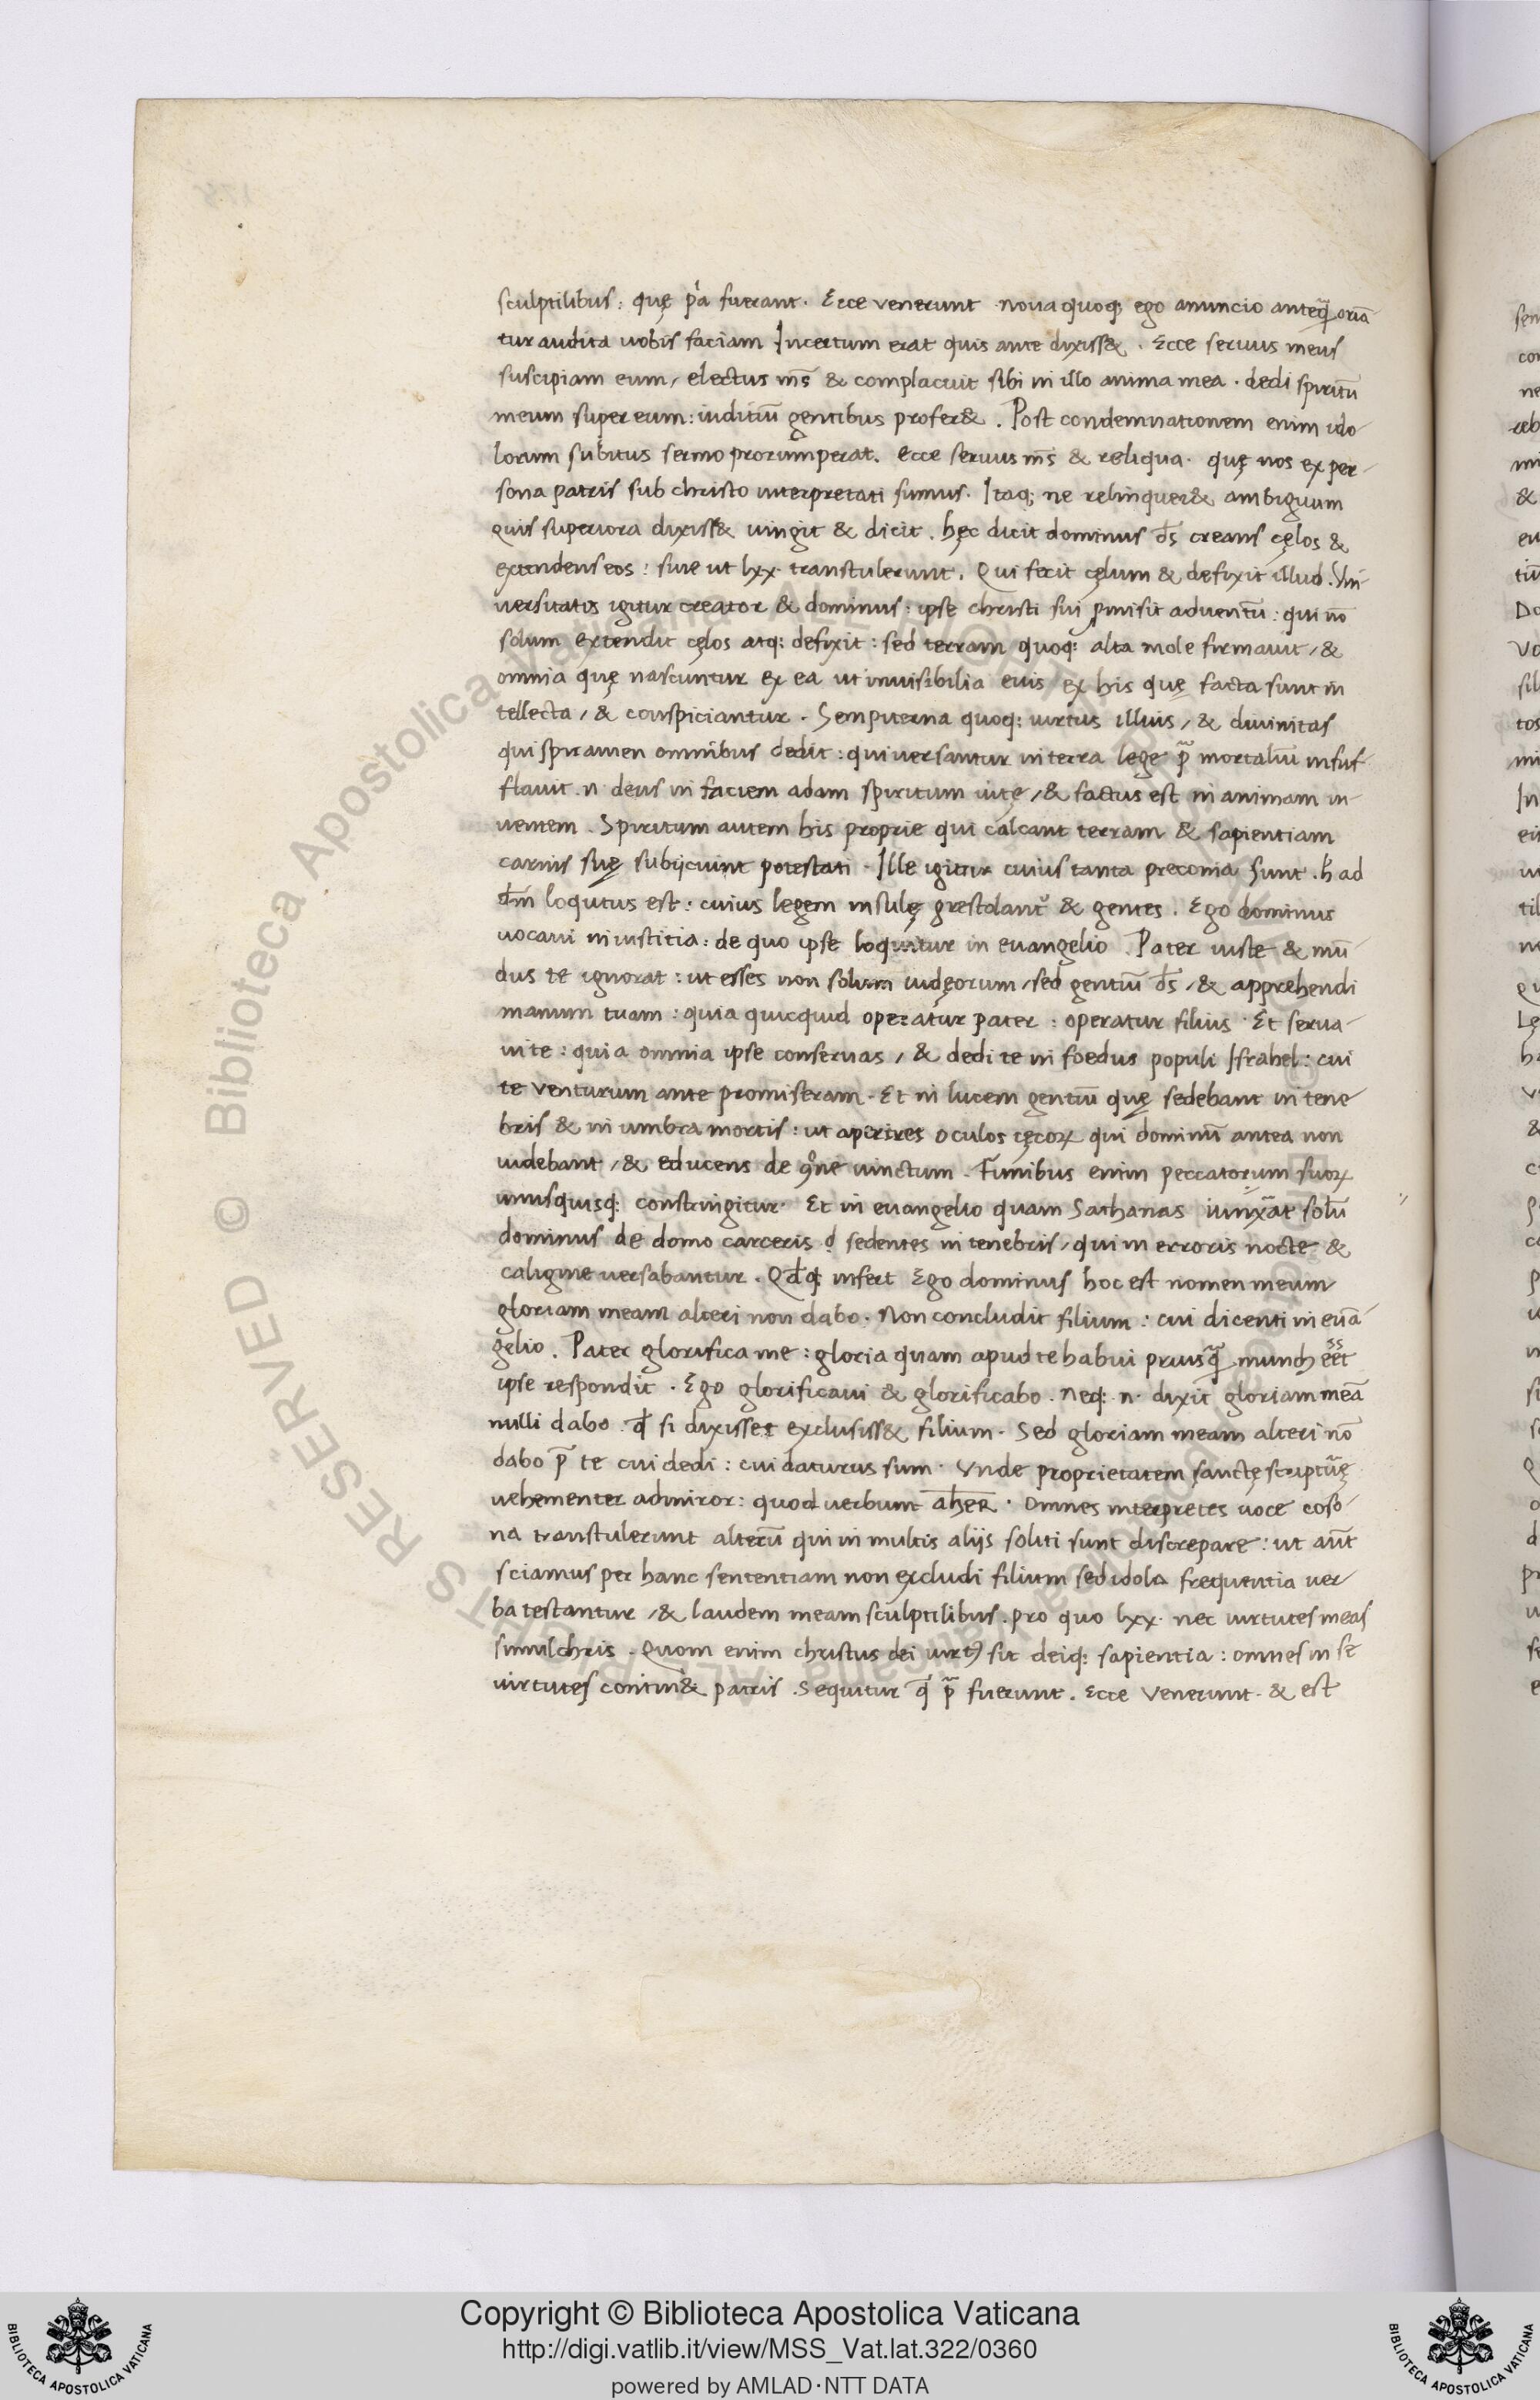 sculptilibus: quę p̾a fuerant. Ecce venerunt noua quoq; ego anuncio anteq̃ oriã
tur audita uobis faciam Incertum erat quis ante dixiss&. Ecce seruus meus
suscipiam eum, electus m̃s & complacuit sibi in illo anima mea. dedi spiritũ
meum super eum: iuditiũ gentibus profer&. Post condemnationem enim ido-
lorum subitus sermo prorumperat. ecce seruus m̃s & reliqua. quę nos ex per-
sona patris sub christo interpretati sumus. Itaq; ne relinquer& ambiguum
quis superiora dixiss& iungit & dicit. hęc dicit dominus d̃s creans cęlos &
extendens eos: siue ut lxx. transtulerunt. Qui fecit cęlum & defixit illud. Uni-
uersitatis igitur creator & dominus: ipse christi sui ꝓmisit aduentũ: qui nõ
solum extendit cęlos atq: defixit: sed terram quoq: alta mole firmauit, &
omnia quę nascuntur ex ea ut inuisibilia euis ex his quę facta sunt in
tellecta, & conspiciantur. Sempiterna quoq: uirtus illius, & diuinitas
qui spiramen omnibus dedit: qui uersantur in terra lege p̃ mortaliũ insuf
flauit .n. deus in faciem adam spiritum uitę, & factus est in animam ui-
uentem. Spiritum autem his proprie qui calcant terram & sapientiam
carnis suę subijciunt potestati. Ille igitur cuius tanta preconia sunt. h̾ ad
d̃m loqutus est: cuius legem insulę prestolant᷑ & gentes. Ego dominus
uocaui in iustitia: de quo ipse loquitur in euangelio. Pater iuste & mũ
dus te ignorat: ut esses non solum iudęorum, sed gentiũ d̃s, & apprehendi
manum tuam: quia quicquid operatur pater: operatur filius. Et serua-
ui te: quia omnia ipse conseruas, & dedi te in foedus populi Israhel: cui
te venturum ante promiseram. Et in lucem gentiũ quę sedebant in tene
bris & in umbra mortis: ut aperires oculos cęcoꝝ qui dominũ antea non
uidebant, & educens de ꝯ̾ne uinctum. Funibus enim peccatorum suoꝝ
unusquisq: constringitur. Et in euangelio quam Sathanas iunx̃at solũ
dominus de domo carceris ꝺ sedentes in tenebris, qui in erroris nocte &
caligine uersabantur. Qđq: infert Ego dominus hoc est nomen meum
gloriam meam alteri non dabo. Non concludit filium: cui dicenti in euã
gelio. Pater glorifica me: gloria quam apud te habui priusq̃ mundi eēt
ipse respondit. Ego glorificaui & glorificabo. Neq: .n. dixit gloriam meã
nulli dabo. qđ si dixisset exclusiss& filium. Sed gloriam meam alteri nõ
dabo p̃ te cui dedi: cui daturus sum. Vnde proprietatem sanctę scriptũę
uehementer admiror: quod uerbum aher. Omnes interpretes uoce cõso-
na transtulerunt alterũ qui in multis aliis soliti sunt discrepare: ut aũt
sciamus per hanc sententiam non excludi filium sed idola frequentia uer
ba testantur, & laudem meam sculptilibus. pro quo lxx. nec uirtutes meas
simulchris. Quom enim christus dei uirtꝰ sit deiq: sapientia: omnes in se
uirtutes contin& patris. Sequitur q̃ p̃ fuerunt. Ecce Venerunt. & est
Copyright © Biblioteca Apostolica Vaticana
http://digi.vatlib.it/view/MSS_Vat.lat.322/0360
powered by AMLAD·NTT DATA